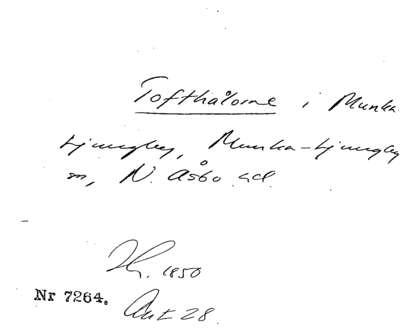 Tofthålorne i Munka
Ljungby, Munka-Ljungby
sn, N. Åsbo hd.
1850
Nr 7264. Akt 28.